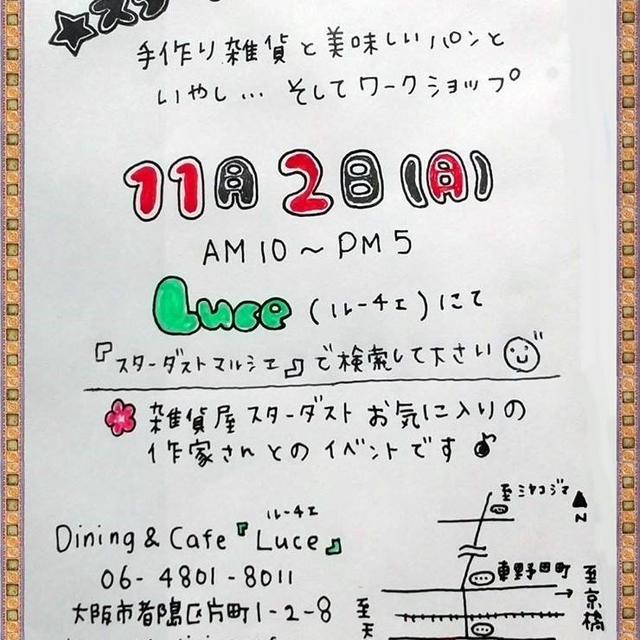 手作り雑貨と美味しいパンと
いやし… そしてワークショップ
11月2日(月)
AM10～PM5
Luce(ルーチェ)にて
『スターダストマルシェ』で検索して下さい
雑貨屋スターダストお気に入りの
作家さんとのイベントです♪
ルーチェ
Dining & Cafe『Luce』
06-4801-8011
大阪市都島区片町1-2-8
至ミヤコジマ
N
東野田町
至京橋
至天